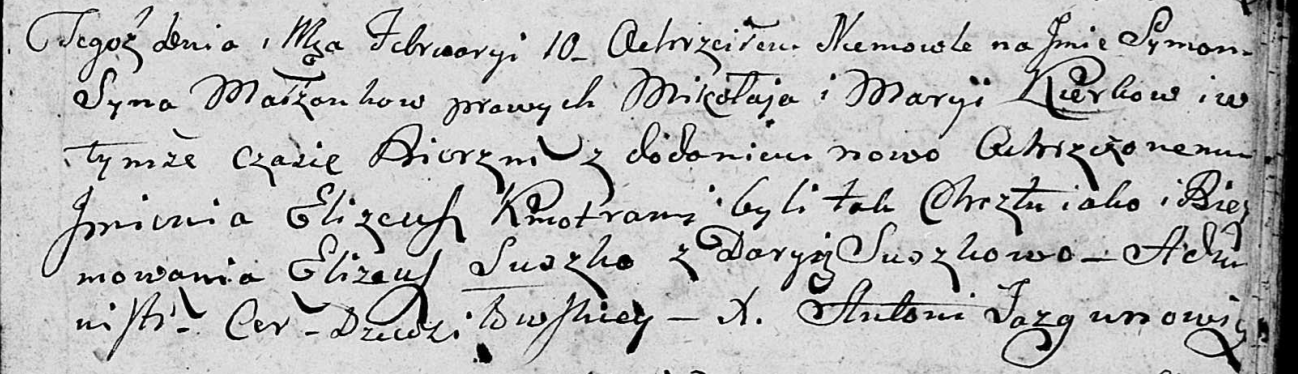 Tegoż dnia i Mca Februaryi 10 – Ochrzciłem Niemowle na Jmie Symon
Syna Małżonkow prawych Mikołaja i Maryi Kierkow i w
tymże czasie Bierzm z dodaniem nowo Ochrzczonemu
Jmienia Elizeusz Kmotrami byli tak Chrztu iako i Bież
mowania Elizeusz Suszko z Daryij Suszkowo – Admi
nistr – Cer – X. Antoni Jazgunowicz